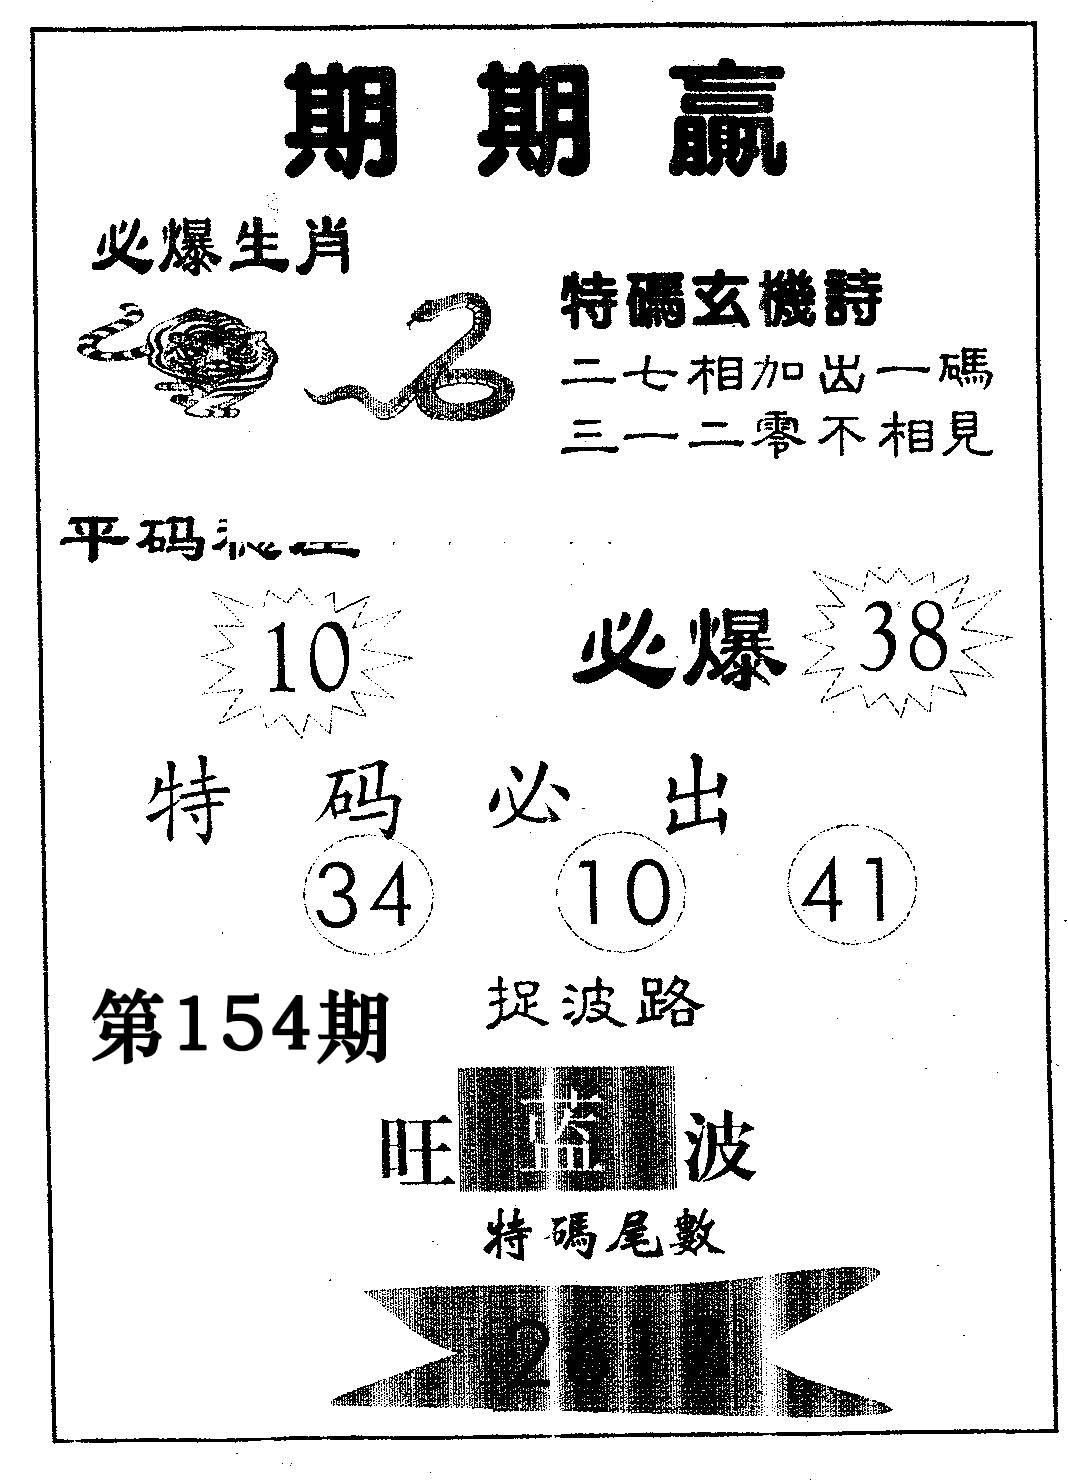 期期贏
必爆生肖
特碼玄機詩
二七相加出一碼
三一二零不相見
平码
10
必爆
38
特码必出
34
10
41
第154期
捉波路
旺藍波
特碼尾數